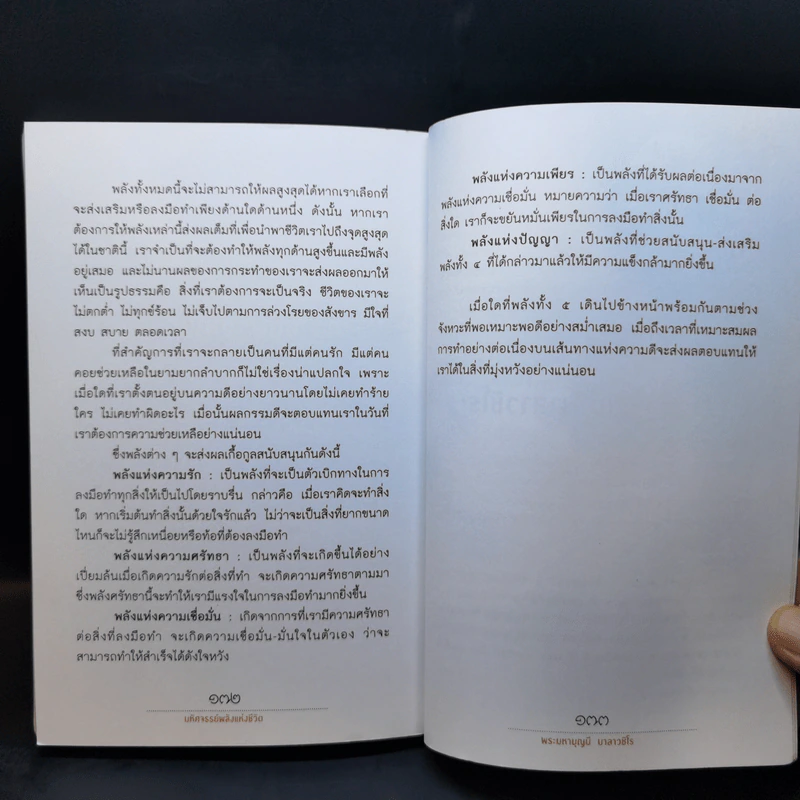 พลังทั้งหมดนี้จะไม่สามารถให้ผลสูงสุดได้หากเราเลือกที่
จะส่งเสริมหรือลงมือทำเพียงด้านใดด้านหนึ่ง ดังนั้น หากเรา
ต้องการให้พลังเหล่านี้ส่งผลเต็มที่เพื่อนำพาชีวิตเราไปถึงจุดสูงสุด
ได้ในชาตินี้ เราจำเป็นที่จะต้องทำให้พลังทุกด้านสูงขึ้นและมีพลัง
อยู่เสมอ และไม่นานผลของการกระทำของเราจะส่งผลออกมาให้
เห็นเป็นรูปธรรมคือ สิ่งที่เราต้องการจะเป็นจริง ชีวิตของเราจะ
ไม่ตกต่ำ ไม่ทุกข์ร้อน ไม่เจ็บไปตามการล่วงโรยของสังขาร มีใจที่
สงบ สบาย ตลอดเวลา
ที่สำคัญการที่เราจะกลายเป็นคนที่มีแต่คนรัก มีแต่คน
คอยช่วยเหลือในยามยากลำบากก็ไม่ใช่เรื่องน่าแปลกใจ เพราะ
เมื่อใดที่เราตั้งตนอยู่บนความดีอย่างยาวนานโดยไม่เคยทำร้าย
ใคร ไม่เคยทำผิดอะไร เมื่อนั้นผลกรรมดีจะตอบแทนเราในวันที่
เราต้องการความช่วยเหลืออย่างแน่นอน
ซึ่งพลังต่าง ๆ จะส่งผลเกื้อกูลสนับสนุนกันดังนี้
พลังแห่งความรัก : เป็นพลังที่จะเป็นตัวเบิกทางในการ
ลงมือทำทุกสิ่งให้เป็นไปโดยราบรื่น กล่าวคือ เมื่อเราคิดจะทำสิ่ง
ใด หากเริ่มต้นทำสิ่งนั้นด้วยใจรักแล้ว ไม่ว่าจะเป็นสิ่งที่ยากขนาด
ไหนก็จะไม่รู้สึกเหนื่อยหรือท้อที่ต้องลงมือทำ
พลังแห่งความศรัทธา : เป็นพลังที่จะเกิดขึ้นได้อย่าง
เปี่ยมล้นเมื่อเกิดความรักต่อสิ่งที่ทำ จะเกิดความศรัทธาตามมา
ซึ่งพลังศรัทธานี้จะทำให้เรามีแรงใจในการลงมือทำมากยิ่งขึ้น
พลังแห่งความเชื่อมั่น : เกิดจากการที่เรามีความศรัทธา
ต่อสิ่งที่ลงมือทำ จะเกิดความเชื่อมั่น-มั่นใจในตัวเอง ว่าจะ
สามารถทำให้สำเร็จได้ดังใจหวัง
๑๗๒
มหัศจรรย์พลังแห่งชีวิต
พลังแห่งความเพียร : เป็นพลังที่ได้รับผลต่อเนื่องมาจาก
พลังแห่งความเชื่อมั่น หมายความว่า เมื่อเราศรัทธา เชื่อมั่น ต่อ
สิ่งใด เราก็จะขยันหมั่นเพียรในการลงมือทำสิ่งนั้น
พลังแห่งปัญญา : เป็นพลังที่ช่วยสนับสนุน-ส่งเสริม
พลังทั้ง ๔ ที่ได้กล่าวมาแล้วให้มีความแข็งกล้ามากยิ่งขึ้น
เมื่อใดที่พลังทั้ง ๕ เดินไปข้างหน้าพร้อมกันตามช่วง
จังหวะที่พอเหมาะพอดีอย่างสม่ำเสมอ เมื่อถึงเวลาที่เหมาะสมผล
การทำอย่างต่อเนื่องบนเส้นทางแห่งความดีจะส่งผลตอบแทนให้
เราได้ในสิ่งที่มุ่งหวังอย่างแน่นอน
๑๗๓
พระมหาบุญมี มาลาวชิโร